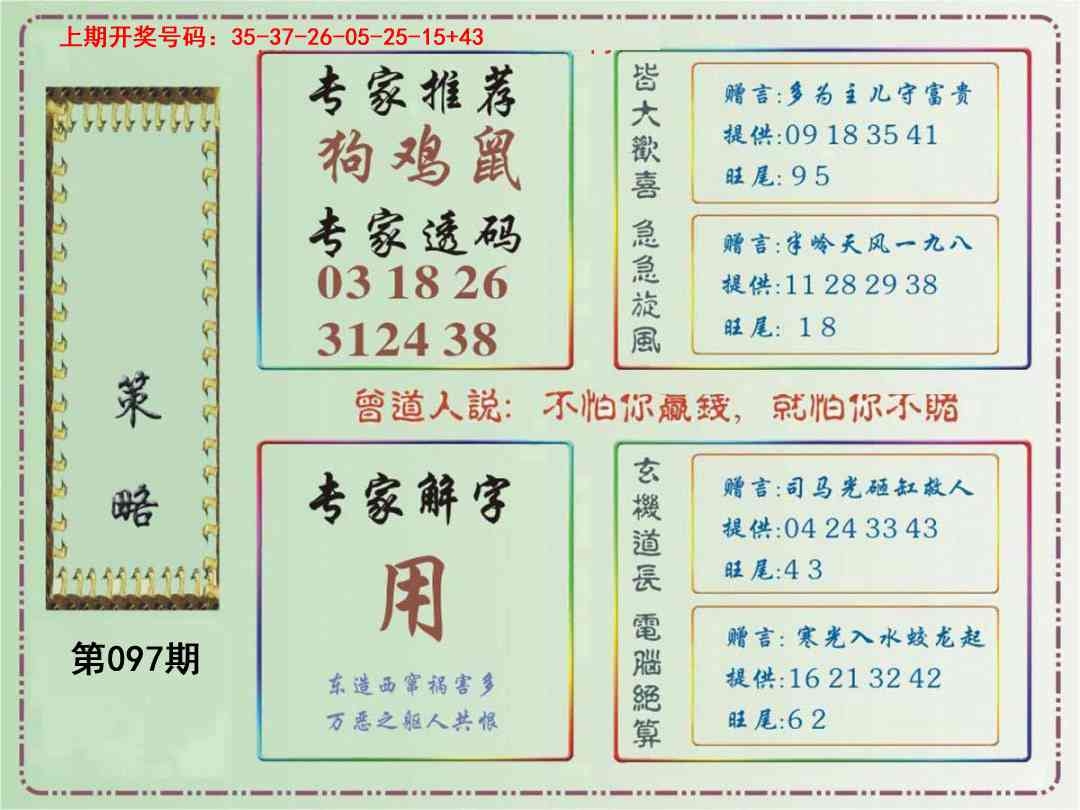 上期开奖号码：35-37-26-05-25-15+43
策略
第097期
专家推荐
狗鸡鼠
专家透码
03 18 26
31 24 38
皆大歡喜
赠言:多为主儿守富贵
提供:09 18 35 41
旺尾: 9 5
急急旋風
赠言:半岭天风一九八
提供:11 28 29 38
旺尾: 1 8
曾道人説: 不怕你贏錢, 就怕你不賭
专家解字
用
东造西窜祸害多
万恶之躯人共恨
玄機道長
赠言:司马光砸缸救人
提供:04 24 33 43
旺尾:4 3
電腦絕算
赠言: 寒光入水蛟龙起
提供:16 21 32 42
旺尾:6 2